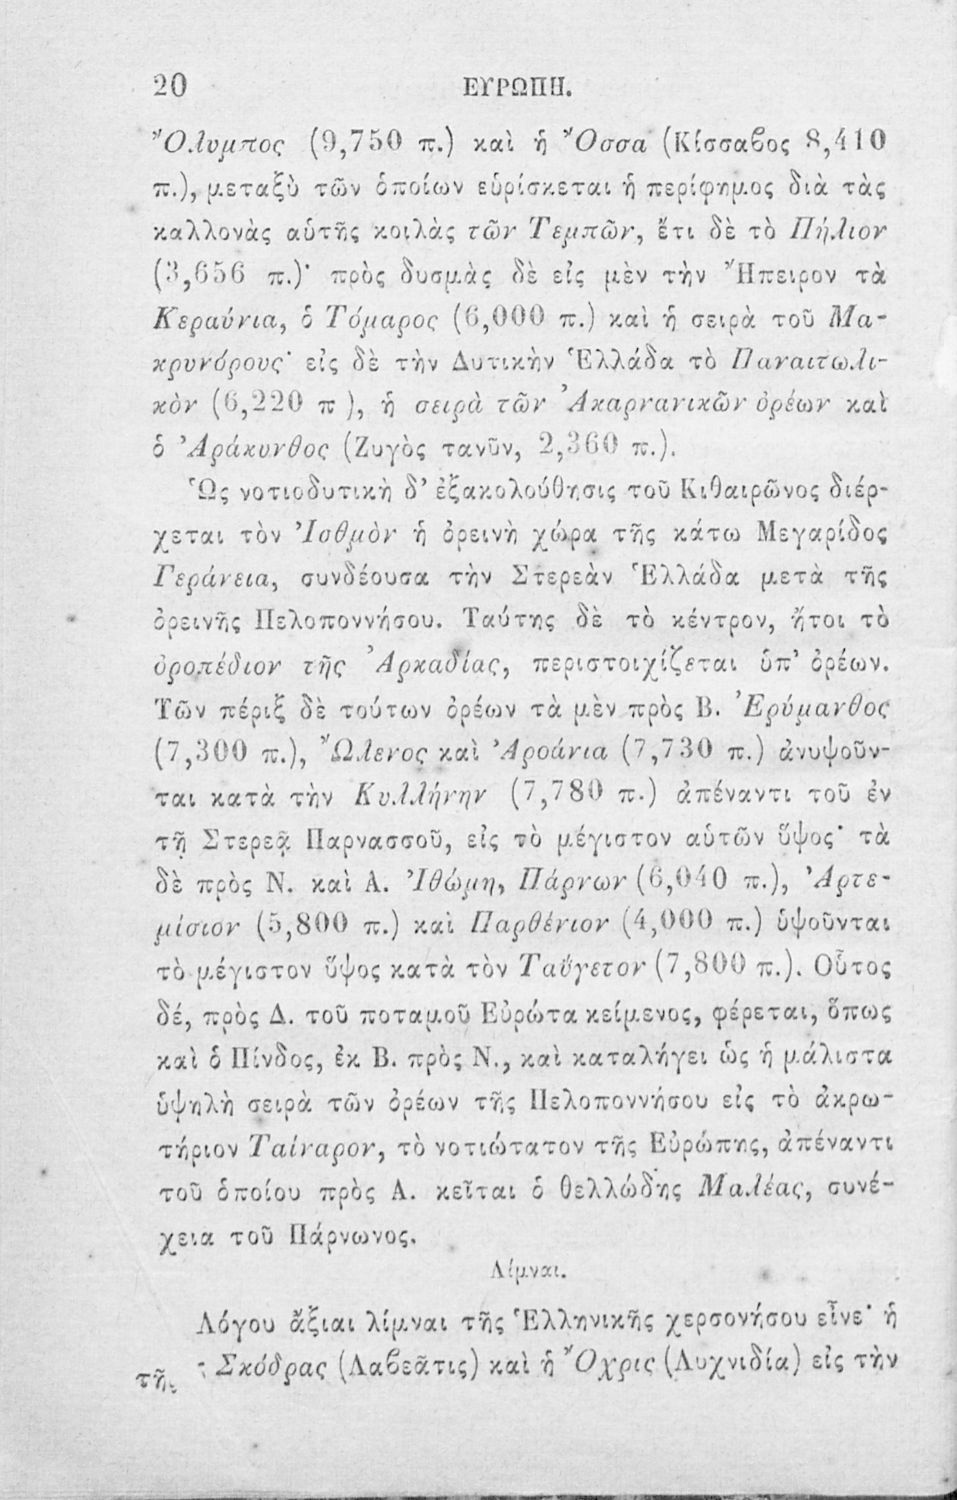 20 ΕΥΡΩΠΗ.
Ὄλυμπος (9,750 π.) καὶ ἡ Ὄσσα (Κίσσαβος 8,410
π.), μεταξὺ τῶν ὁποίων εὑρίσκεται ἡ περίφημος διὰ τὰς
καλλονὰς αὑτῆς κοιλὰς τῶν Τεμπῶν, ἔτι δὲ τὸ Πήλιον
(3,656 π.)· πρὸς δυσμὰς δὲ εἰς μὲν τὴν Ἤπειρον τὰ
Κεραύνια, ὁ Τόμαρος (6,000 π.) καὶ ἡ σειρὰ τοῦ Μα-
κρυνόρους· εἰς δὲ τὴν Δυτικὴν Ἑλλάδα τὸ Παναιτωλι-
κὸν (6,220 π ), ἡ σειρὰ τῶν Ἀκαρνανικῶν ὀρέων καὶ
ὁ Ἀράκυνθος (Ζυγὸς τανῦν, 2,360 π.).
Ὡς νοτιοδυτικὴ δ’ ἐξακολούθησις τοῦ Κιθαιρῶνος διέρ-
χεται τὸν Ἰσθμὸν ἡ ὀρεινὴ χώρα τῆς κάτω Μεγαρίδος
Γεράνεια, συνδέουσα τὴν Στερεὰν Ἑλλάδα μετὰ τῆς
ὀρεινῆς Πελοποννήσου. Ταύτης δὲ τὸ κέντρον, ἤτοι τὸ
ὀροπέδιον τῆς Ἀρκαδίας, περιστοιχίζεται ὑπ’ ὀρέων.
Τῶν πέριξ δὲ τούτων ὀρέων τὰ μὲν πρὸς Β. Ἐρύμανθος
(7,300 π.), Ὤλενος καὶ Ἀροάνια (7,730 π.) ἀνυψοῦν-
ται κατὰ τὴν Κυλλήνην (7,780 π.) ἀπέναντι τοῦ ἐν
τῇ Στερεᾷ Παρνασσοῦ, εἰς τὸ μέγιστον αὑτῶν ὕψος· τὰ
δὲ πρὸς Ν. καὶ Α. Ἰθώμη, Πάρνων (6,040 π.), Ἀρτε-
μίσιον (5,800 π.) καὶ Παρθένιον (4,000 π.) ὑψοῦνται
τὸ μέγιστον ὕψος κατὰ τὸν Ταΰγετον (7,800 π.). Οὗτος
δέ, πρὸς Δ. τοῦ ποταμοῦ Εὐρώτα κείμενος, φέρεται, ὅπως
καὶ ὁ Πίνδος, ἐκ Β. πρὸς Ν., καὶ καταλήγει ὡς ἡ μάλιστα
ὑψηλὴ σειρὰ τῶν ὀρέων τῆς Πελοποννήσου εἰς τὸ ἀκρω-
τήριον Ταίναρον, τὸ νοτιώτατον τῆς Εὐρώπης, ἀπέναντι
τοῦ ὁποίου πρὸς Α. κεῖται ὁ θελλώδης Μαλέας, συνέ-
χεια τοῦ Πάρνωνος.
Λίμναι.
Λόγου ἄξιαι λίμναι τῆς Ἑλληνικῆς χερσονήσου εἶνε· ἡ
τῆς Σκόδρας (Λαβεᾶτις) καὶ ἡ Ὄχρις (Λυχνιδία) εἰς τὴν